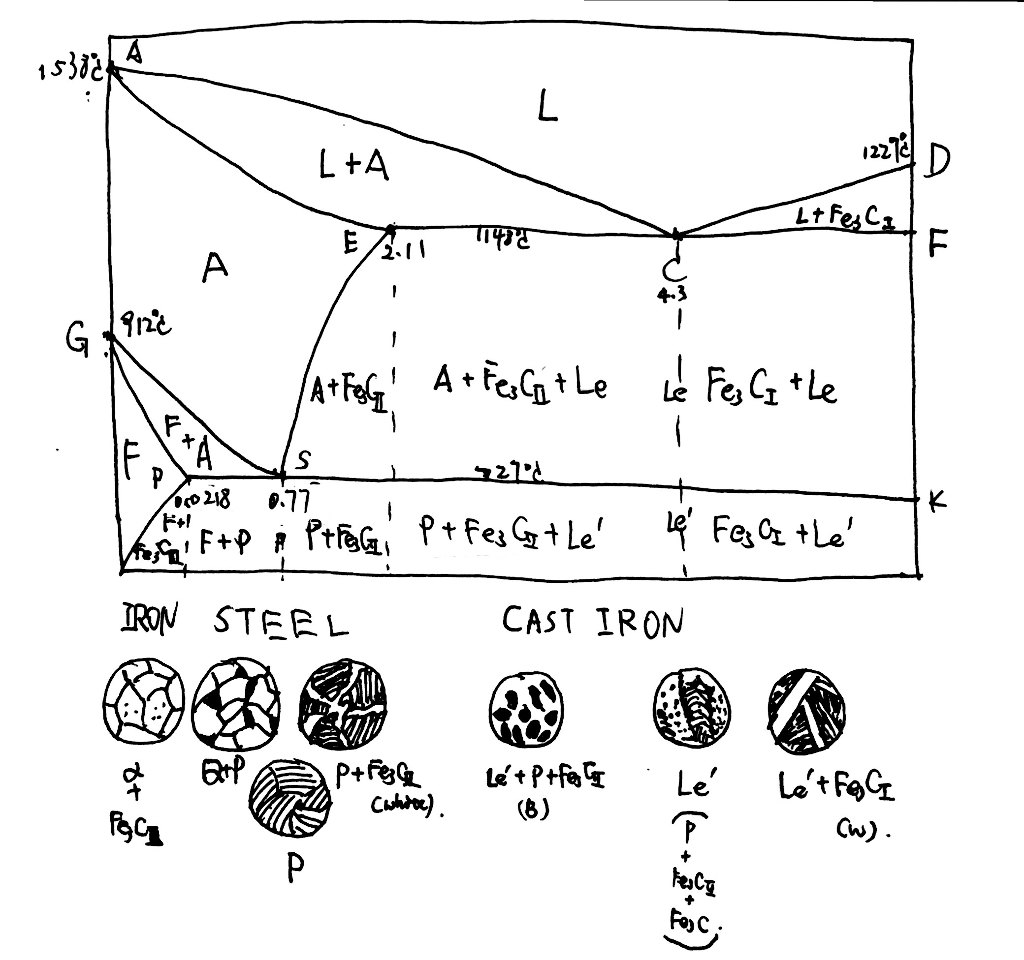 A
1538℃
L
1227℃
D
L+A
L+Fe₃C_I
E
2.11
1148℃
C
4.3
F
A
G
912℃
A+Fe₃C_II
A+Fe₃C_II+Le
Le
Fe₃C_I+Le
F+A
F
P
S
727℃
K
0.0218
0.77
F+
Fe₃C_III
F+P
P
P+Fe₃C_II
P+Fe₃C_II+Le′
Le′
Fe₃C_I+Le′
IRON
STEEL
CAST IRON
α
+
Fe₃C_III
α+P
P+Fe₃C_II
(white).
P
Le′+P+Fe₃C_II
(B)
Le′
P
+
Fe₃C_II
+
Fe₃C.
Le′+Fe₃C_I
(W).